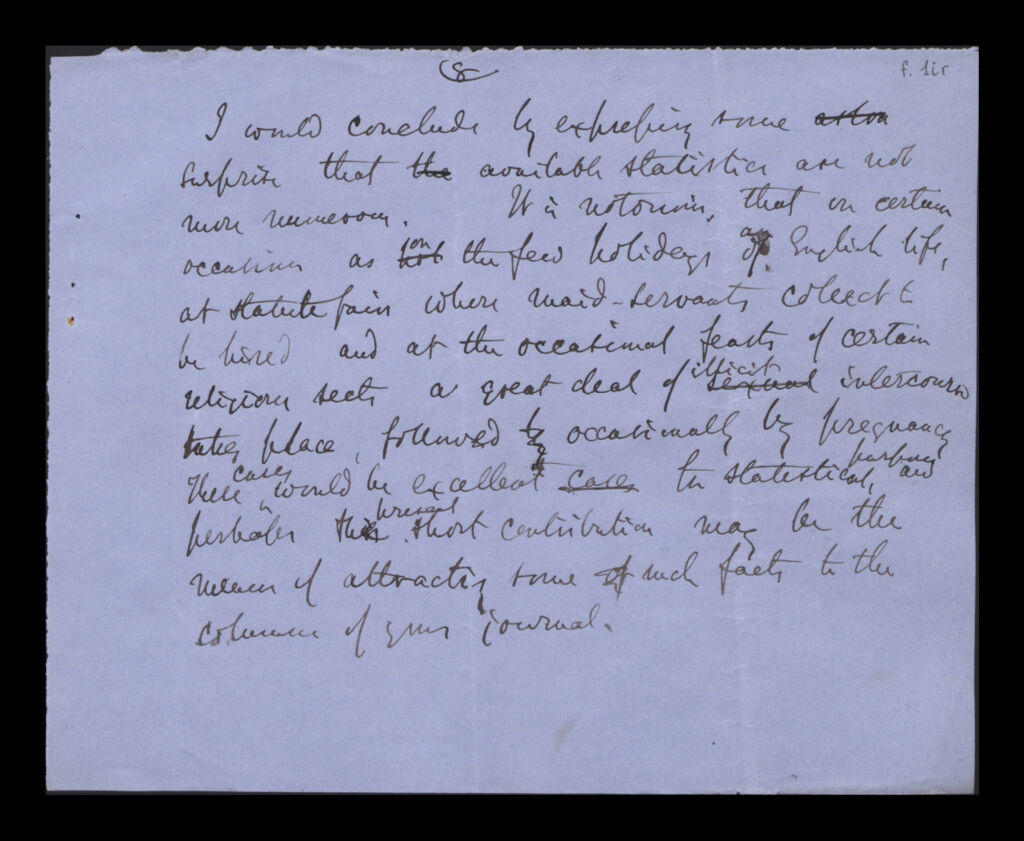 8
f. 1ir
I would conclude by expressing some aston
surprise that the available statistics are not
more numerous. It is notorious, that on certain
occasions as on the few holidays of English life,
at statute fairs where maid-servants collect to
be hired and at the occasional feasts of certain
religious sects a great deal of illicit sexual intercourse
takes place, followed by occasionally by pregnancy
These cases would be excellent cases for statistical purposes, and
perhaps the present short contribution may be the
means of attracting some of such facts to the
columns of your journal.